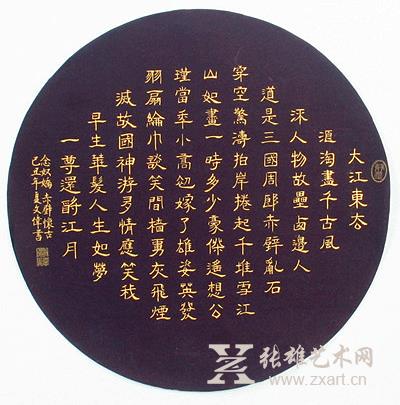 大江東去
浪淘盡千古風
流人物故壘西邊人
道是三國周郎赤壁亂石
穿空驚濤拍岸捲起千堆雪江
山如畫一時多少豪傑遙想公
瑾當年小喬初嫁了雄姿英發
羽扇綸巾談笑間檣虜灰飛煙
滅故國神游多情應笑我
早生華髮人生如夢
一尊還酹江月
念奴嬌 赤壁懷古
己丑年夏文偉書
张雄艺术网
www.zxart.cn